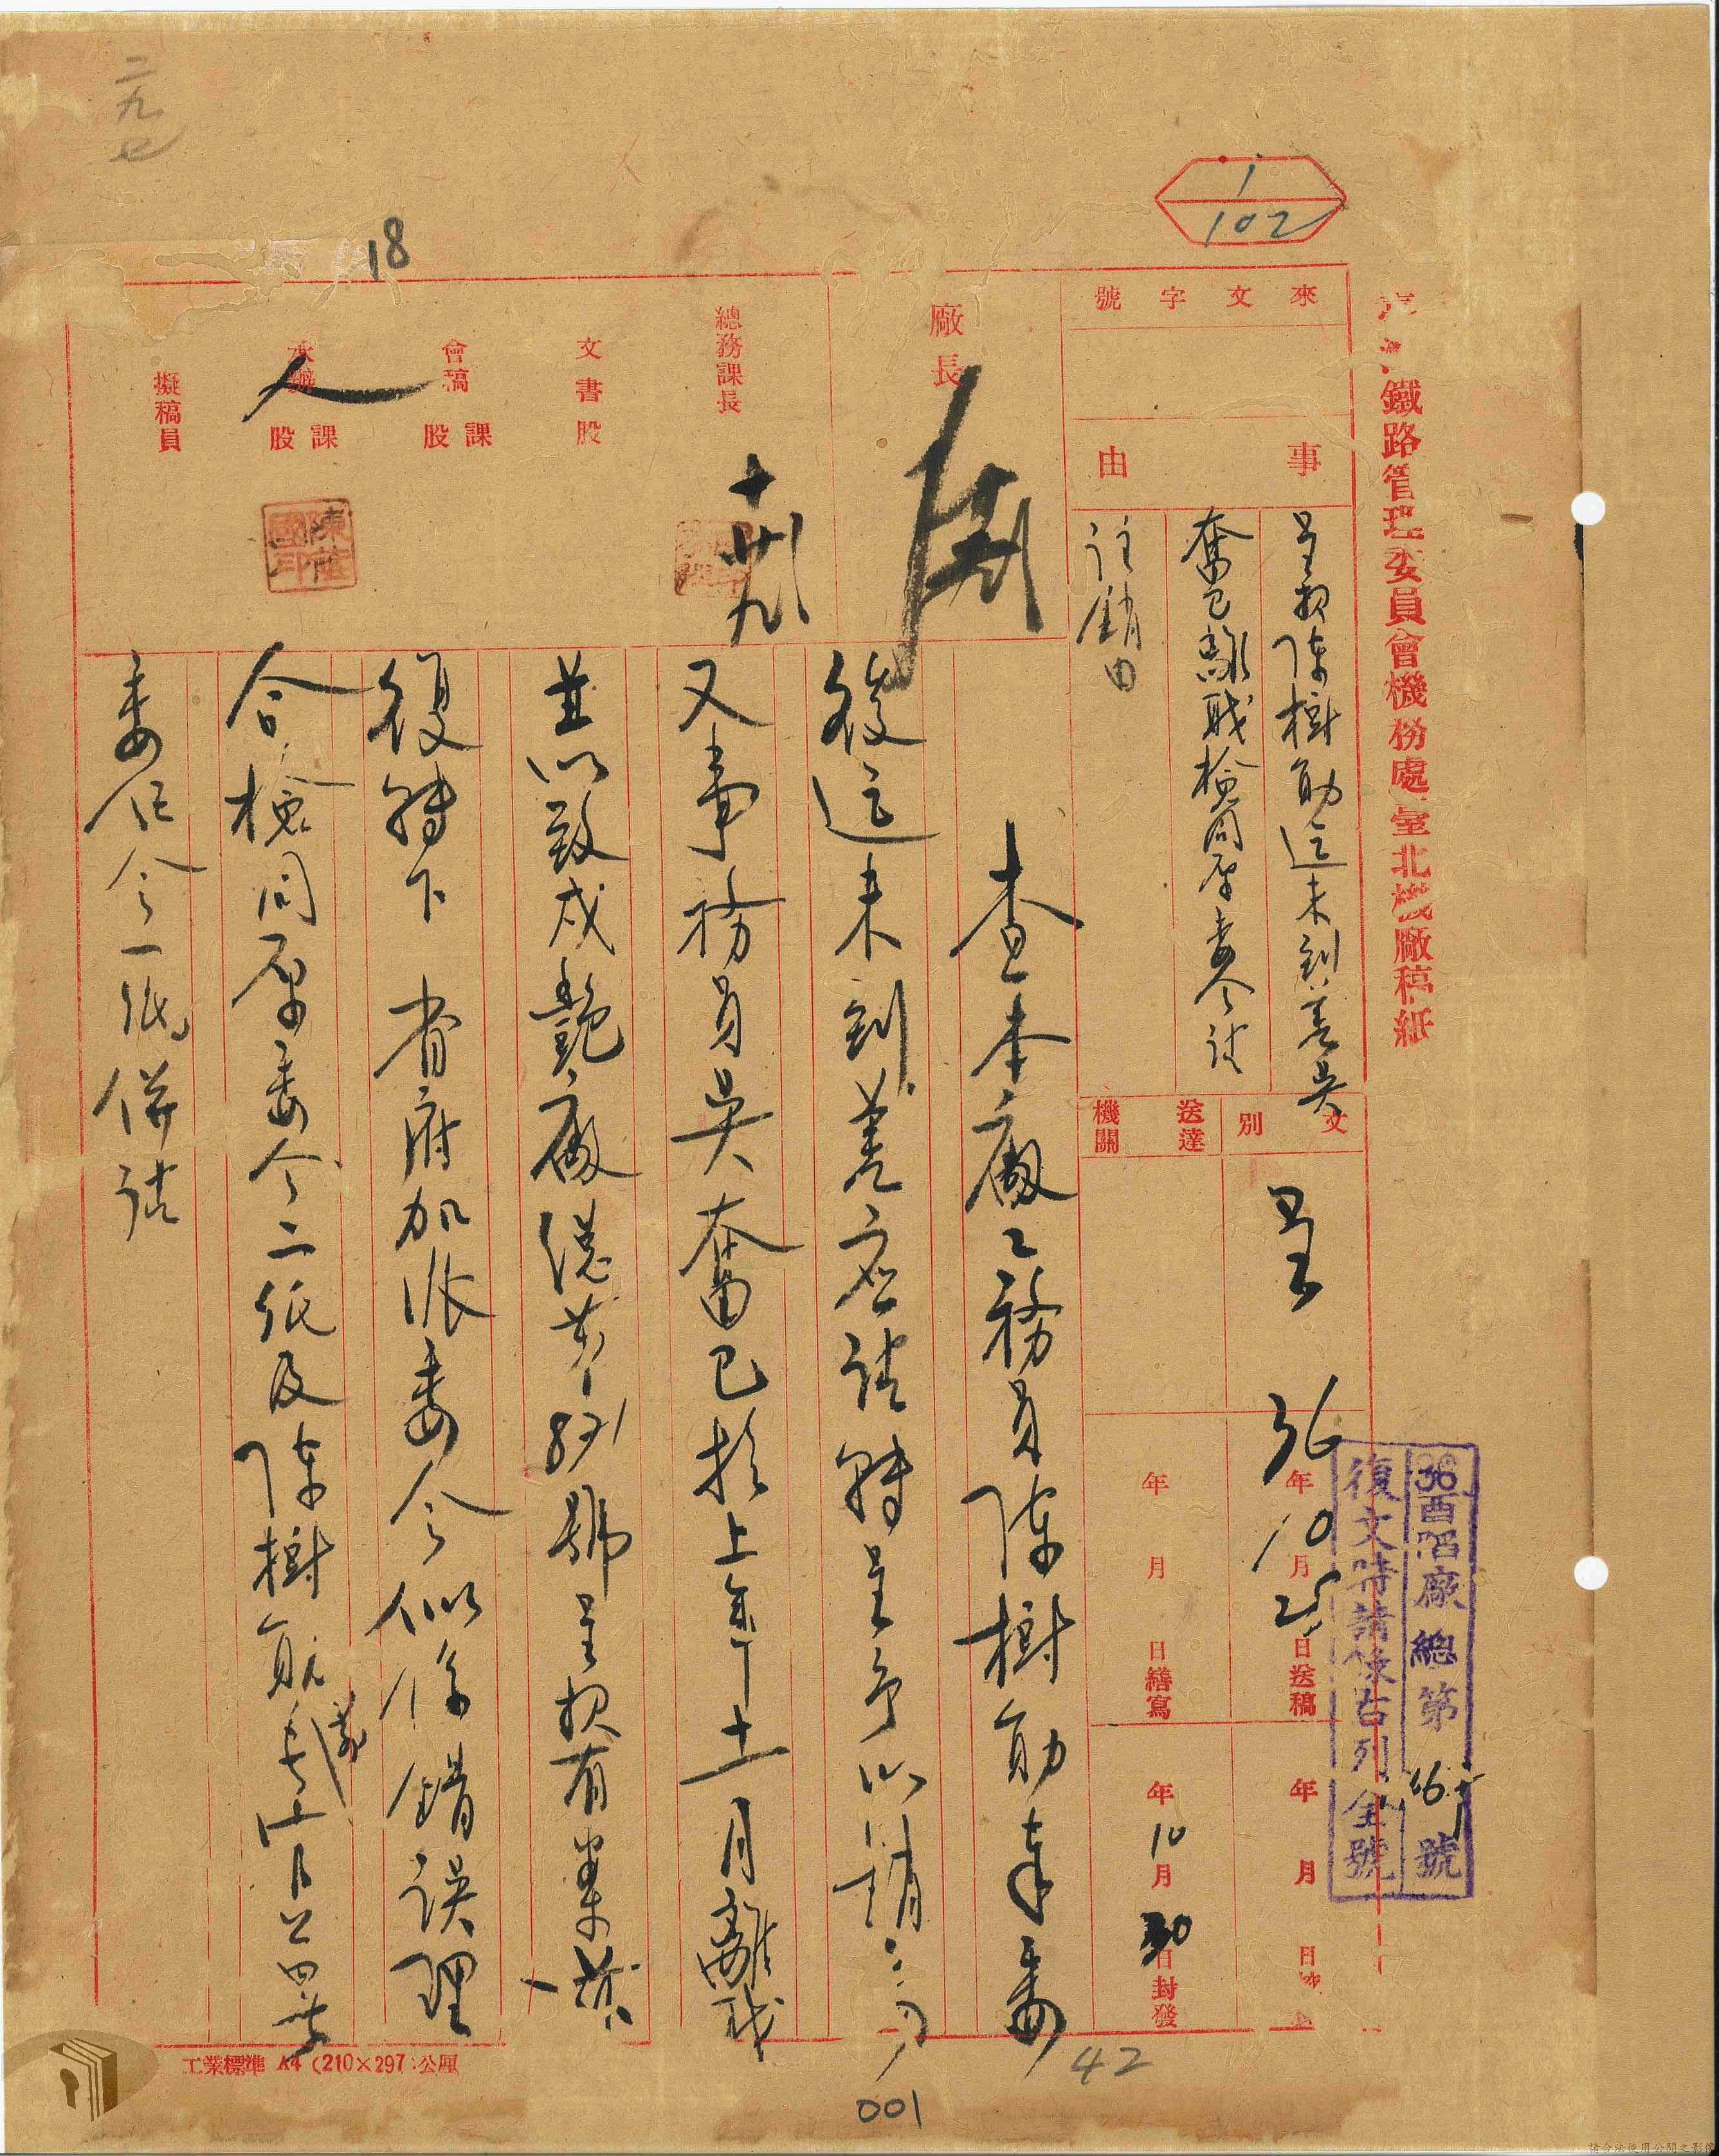 鐵路管理委員會機務處臺北機廠稿紙
1
102
來文字號
事由
呈報陳樹勛迄未到差吳
奮已離職檢同原委令請
註銷由
文別
呈
送達機關
36年10月25日送稿
年月日繕寫
年月日
年10月30日封發
36酉 廠總第 號
復文時請 右列全號
廠長
總務課長
文書股
會稿 課股
承辦 課股
擬稿員
查本廠工務員陳樹勛奉委
後迄未到差應請轉呈予以銷
又事務員吳奮已於上年十一月離職
並以致戌艷廠總 號呈報有案茲
復轉下 省府加派委令似係錯誤理
合檢同原委令二紙及陳樹勛
委任令一紙併請
二九七
18
42
001
工業標準 A4 (210×297:公厘
請合法使用公開之影像